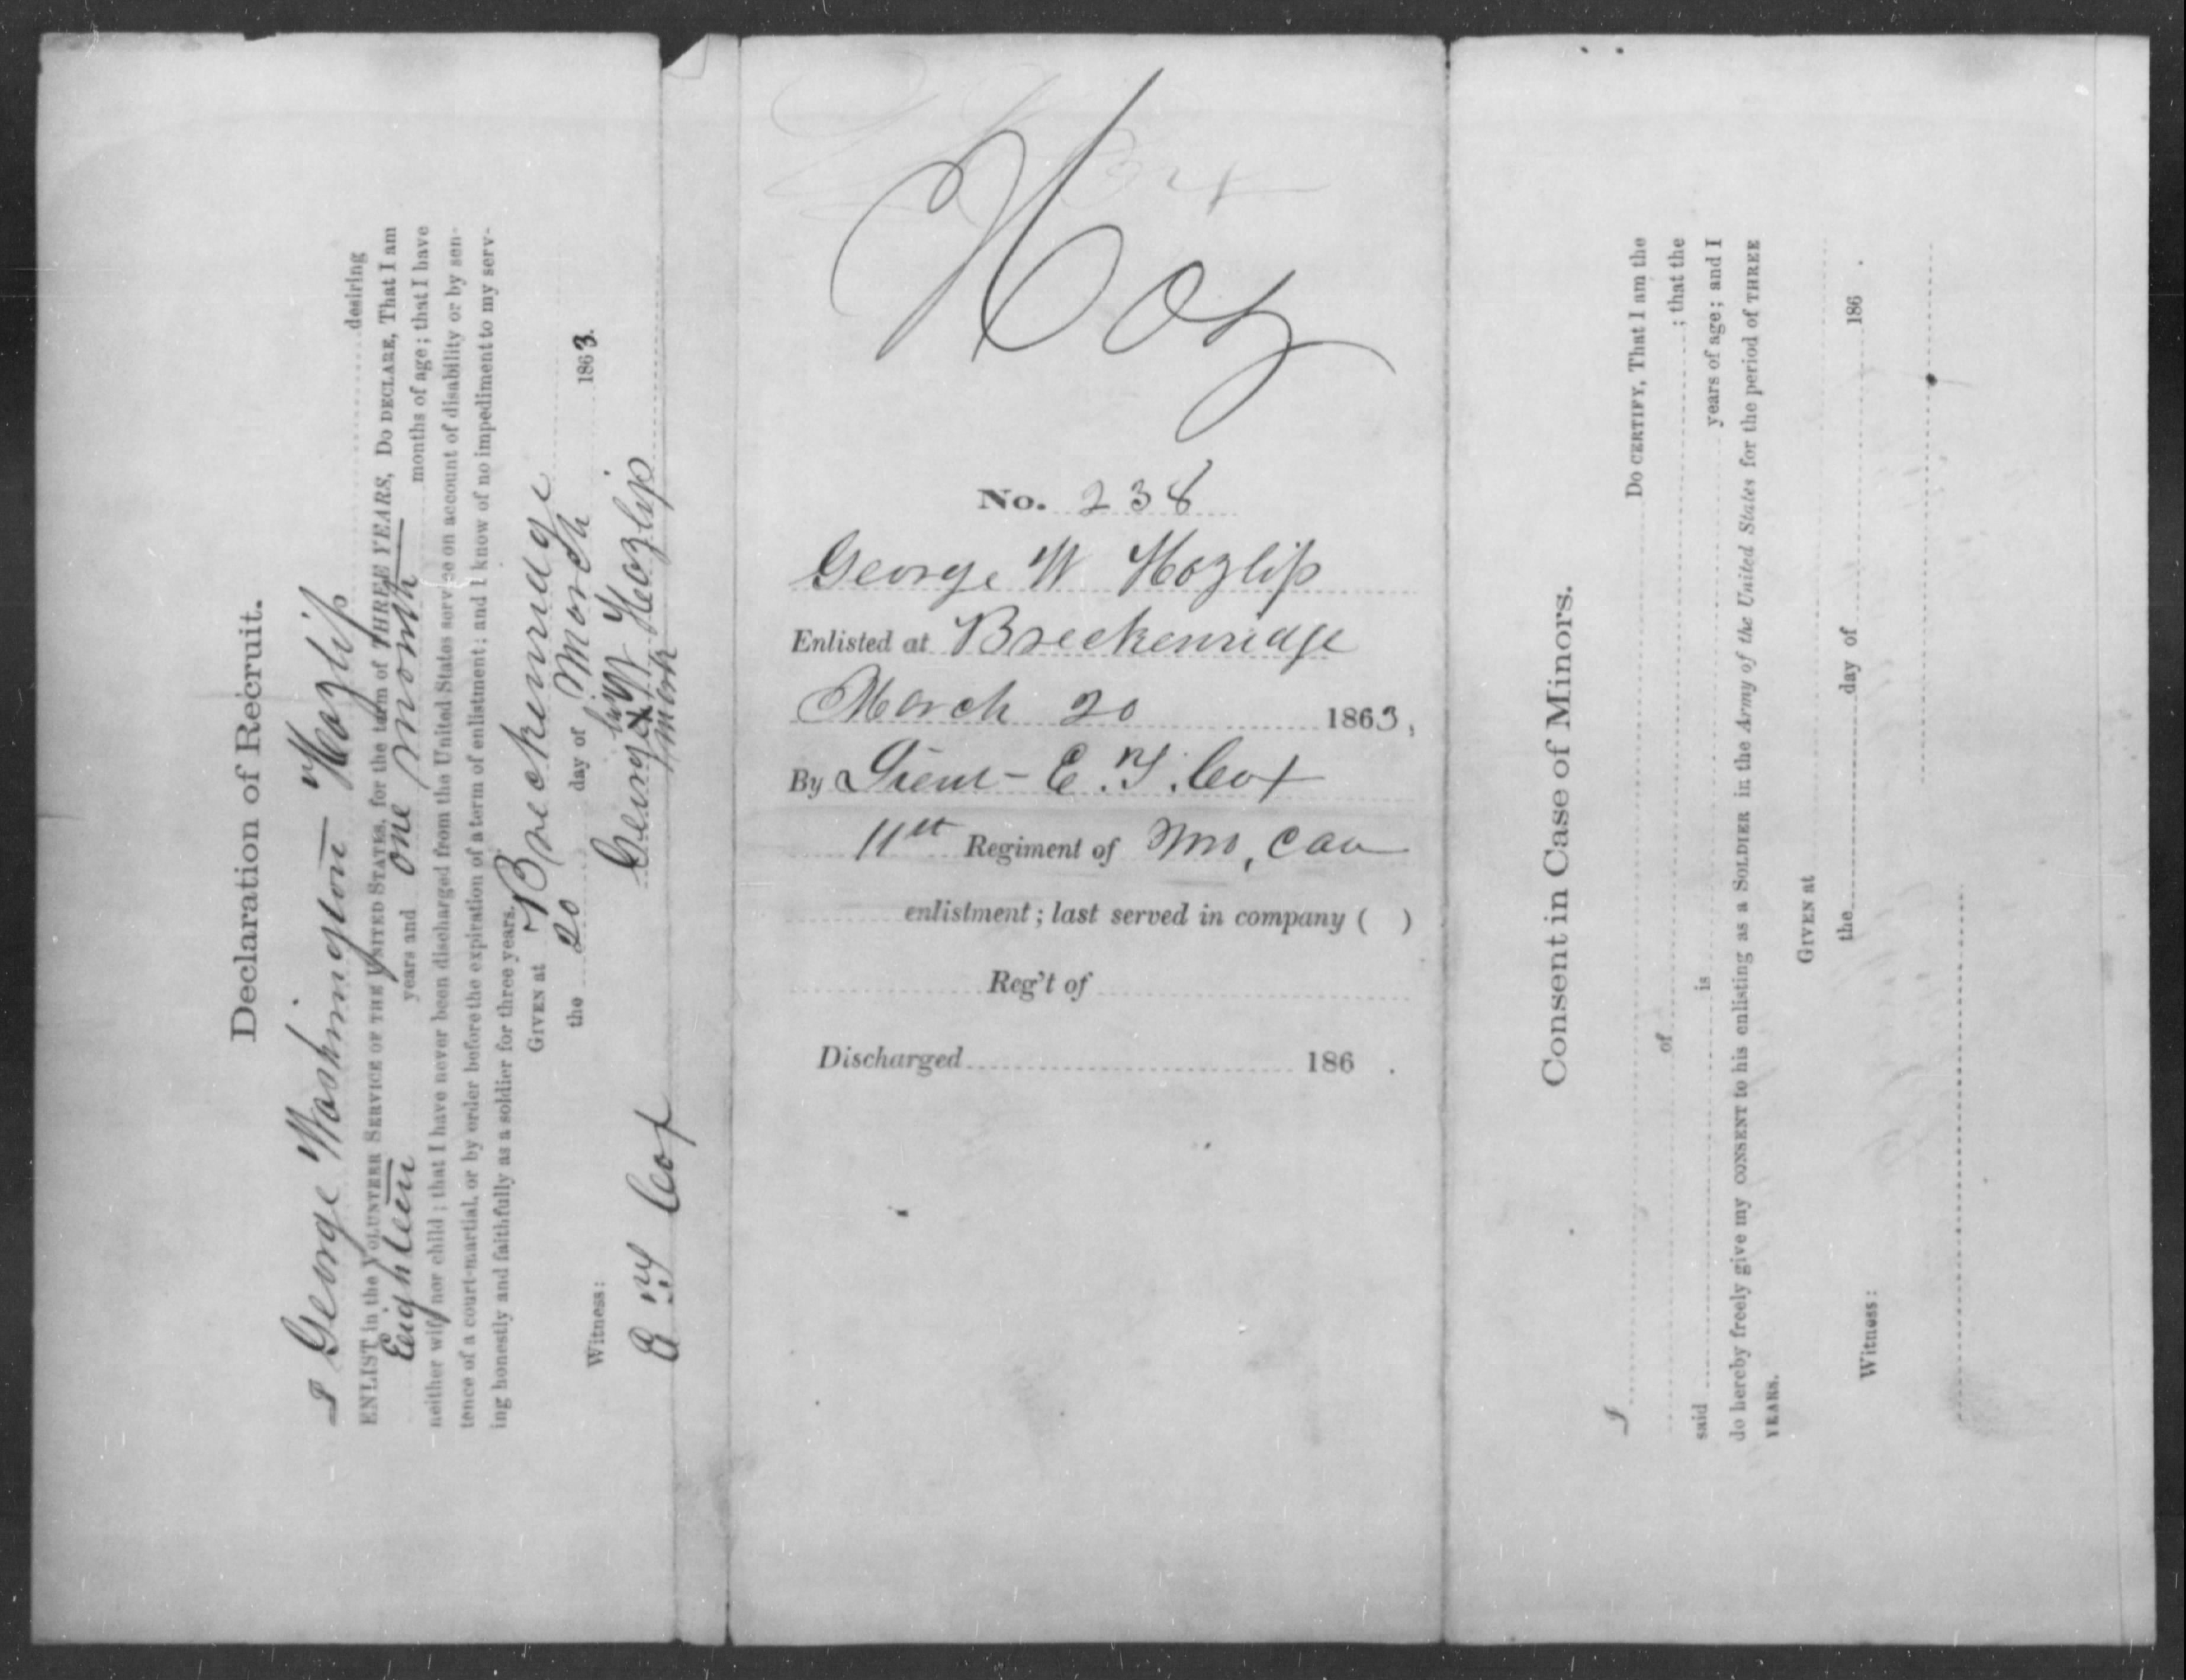 Declaration of Recruit.
I George Washington Hozlip desiring
ENLIST in the VOLUNTEER SERVICE OF THE UNITED STATES, for the term of THREE YEARS, DO DECLARE, That I am
Eighteen years and one month months of age; that I have
neither wife nor child; that I have never been discharged from the United States service on account of disability or by sen-
tence of a court-martial, or by order before the expiration of a term of enlistment; and I know of no impediment to my serv-
ing honestly and faithfully as a soldier for three years.
GIVEN at Breckenridge
the 20 day of March 1863.
Witness: George W his X mark Hozlip
E. Y Cox
Hoz
No. 238
George W Hozlip
Enlisted at Breckenridge
March 20 1863,
By Lieut - E. Y. Cox
11st Regiment of Mo, Cav
enlistment; last served in company ( )
Reg't of
Discharged 186 .
Consent in Case of Minors.
I DO CERTIFY, That I am the
of ; that the
said is years of age; and I
do hereby freely give my CONSENT to his enlisting as a SOLDIER in the Army of the United States for the period of THREE
YEARS.
GIVEN at
the day of 186 .
Witness: